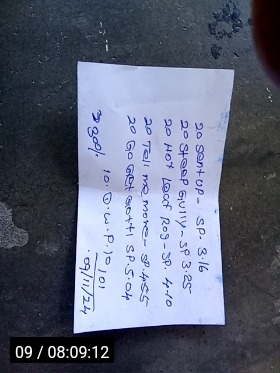 20 Sent up - SP. 3.16
20 Steep Gully - SP 3.25
20 Hot Leaf Rog - SP. 4.10
20 Tell me more - SP. 4.55
20 Go Get Gotti SP. 5.04
10. W. P. 10,101
09/11/24
09 / 08:09:12